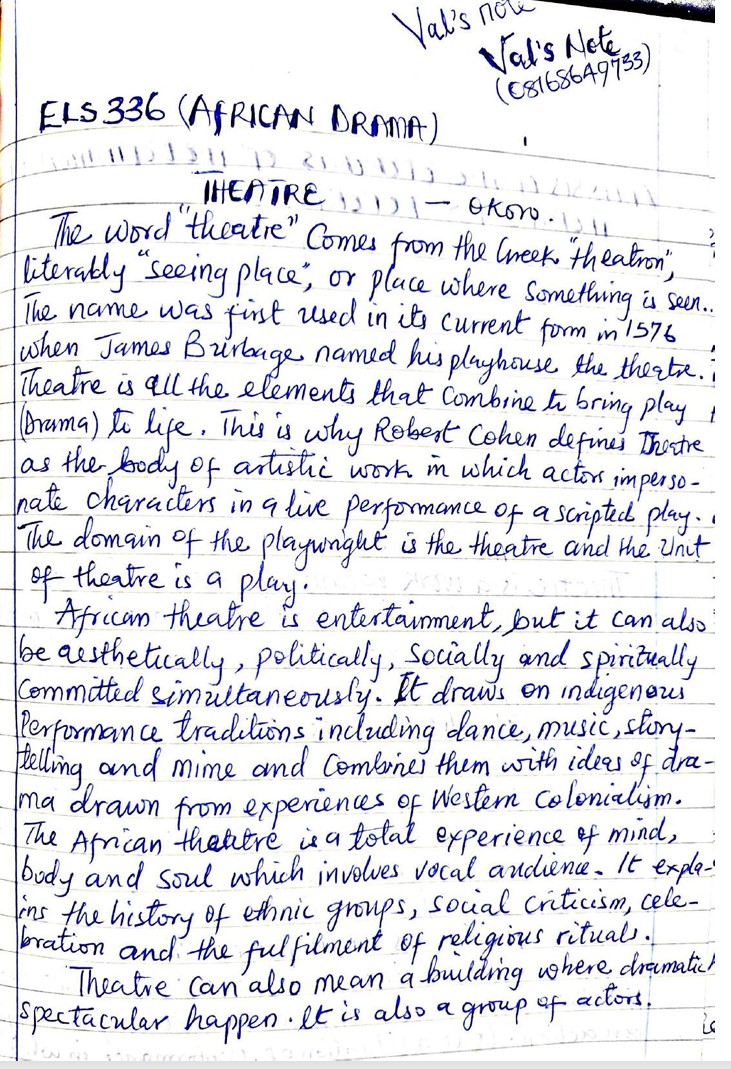 Val's note
Val's Note
(08168649733)
ELS 336 (AFRICAN DRAMA)
THEATRE — Okoro.
The word "theatre" Comes from the Greek "theatron",
literably "seeing place", or place where Something is seen..
The name was first used in its current form in 1576
when James Burbage named his playhouse the theatre.
Theatre is all the elements that Combine to bring play
(Drama) to life. This is why Robert Cohen defines Theatre
as the body of artistic work in which actors imperso-
nate characters in a live performance of a scripted play.
The domain of the playwright is the theatre and the Unit
of theatre is a play.
African theatre is entertainment, but it can also
be aesthetically, politically, Socially and spiritually
Committed simultaneously. It draws on indigenous
Performance traditions including dance, music, story-
telling and mime and Combines them with ideas of dra-
ma drawn from experiences of Western Colonialism.
The African theatre is a total experience of mind,
body and soul which involves vocal audience. It expla-
ins the history of ethnic groups, social criticism, cele-
bration and the fulfilment of religious rituals.
Theatre can also mean a building where dramatic
spectacular happen. It is also a group of actors.